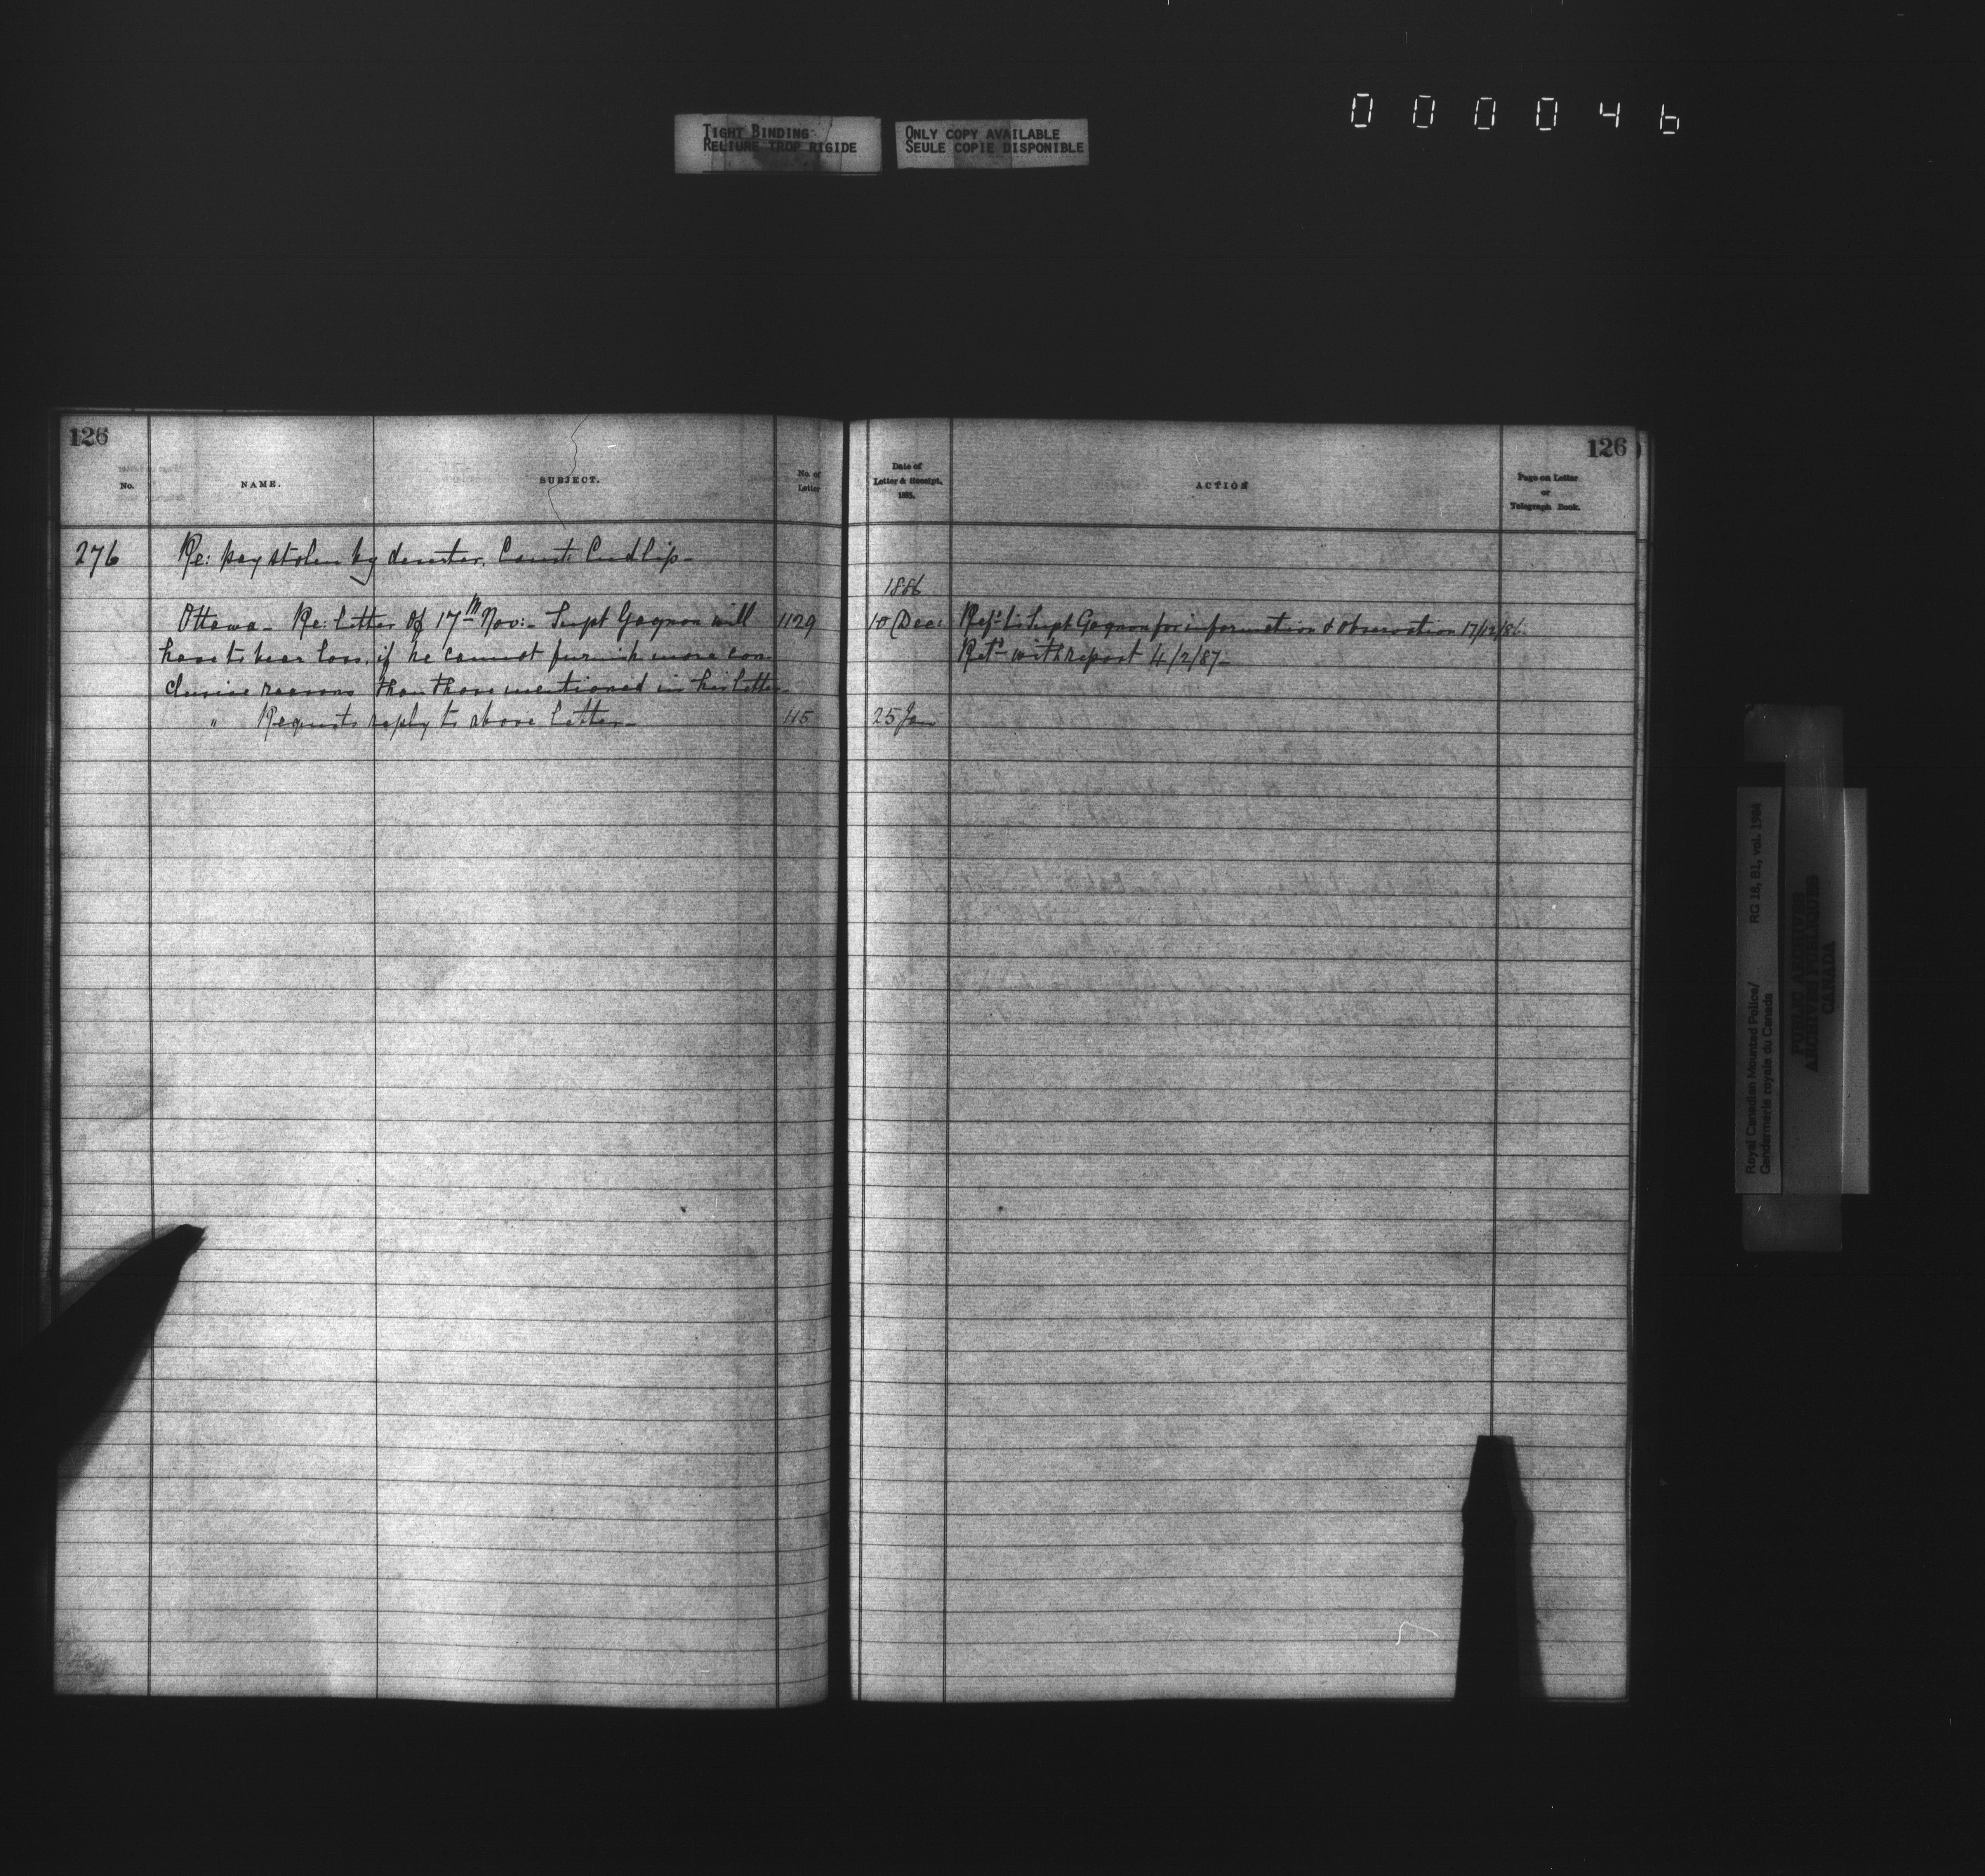 000046
TIGHT BINDING
RELIURE TROP RIGIDE
ONLY COPY AVAILABLE
SEULE COPIE DISPONIBLE
126
No.
NAME.
SUBJECT.
No. of
Letter
276
Re: pay stolen by deserter, Const: Cudlip-
Ottawa- Re: letter of 17th Nov:- Supt Gagnon will 1129
have to bear loss, if he cannot furnish more con
clusive reasons than those mentioned in his letter-
" Requests reply to above letter- 115
126
Date of
Letter & Receipt,
1885.
ACTION
Page on Letter
or
Telegraph Book.
1886
10 Dec: Ref'd to Supt Gagnon for information & observation 17/12/86.
Ret'd with report 4/2/87-
25 Jan
Royal Canadian Mounted Police/ RG 18, B1, vol. 1984
Gendarmerie royale du Canada
PUBLIC ARCHIVES
ARCHIVES PUBLIQUES
CANADA